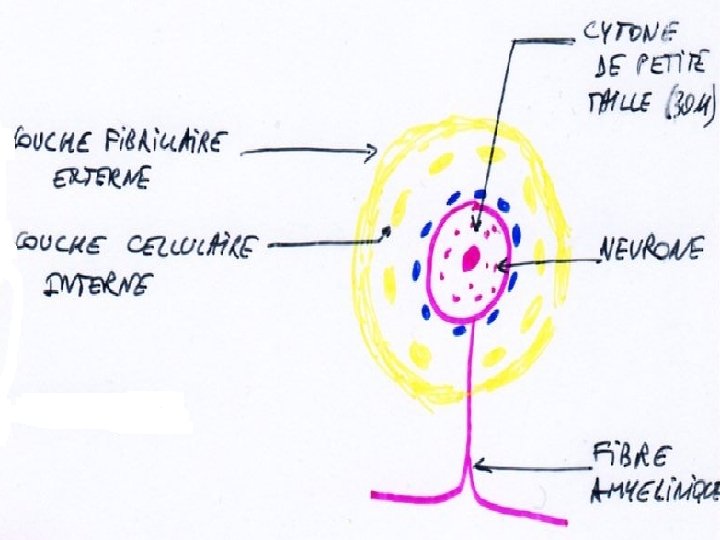 CYTONE
DE PETITE
TAILLE (30µ)
COUCHE FIBRILLAIRE
EXTERNE
COUCHE CELLULAIRE
INTERNE
NEURONE
FIBRE
AMYELINIQUE